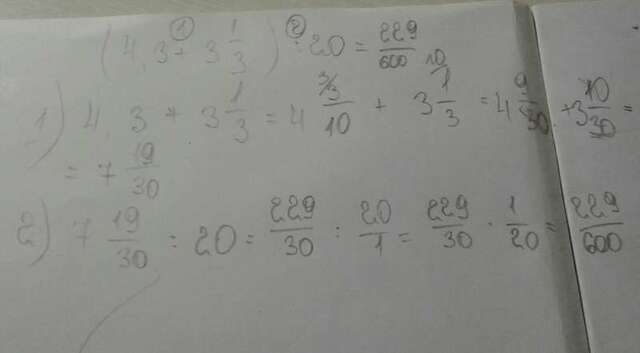 (4,3 + 3 1/3) : 20 = 229/600
1) 4,3 + 3 1/3 = 4 3/10 + 3 1/3 = 4 9/30 + 3 10/30 =
= 7 19/30
2) 7 19/30 : 20 = 229/30 : 20/1 = 229/30 · 1/20 = 229/600